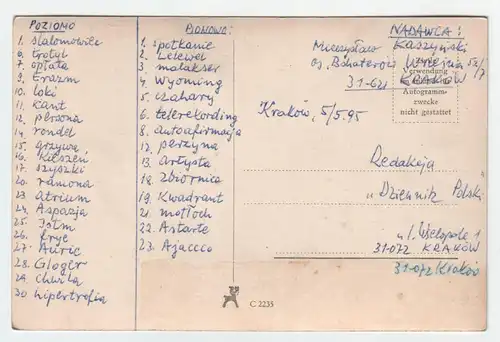 POZIOMO
1. slalomowiec
6. trotyl
7. opłata
9. Erazm
10. loki
11. Kant
12. persona
14. rondel
15. grzywa
16. Kieszeń
17. szyszki
20. ramona
23. atrium
24. Aspazja
25. Totm
26. Erye
27. Auric
28. Gloger
29. chwila
30 hipertrofia
PIONOWO:
1. spotkanie
2. Lelewel
3. malakser
4. Wyoming
5. Czahary
6. telerekording
8. autoafirmacja
12. perzyna
13. artysta
18. zbiornica
19. Kwadrant
21. motłoch
22. Astarte
23. Ajaccco
NADAWCA:
Mieczysław Kaszyński
os. Bohaterów Września
31-621 KRAKÓW
Verwendung
Autogramm-
zwecke
nicht gestattet
Kraków, 5/5.95
Redakcja
"Dziennik Polski"
ul. Wielopole 1
31-072 KRAKÓW
31-072 Kraków
C 2235